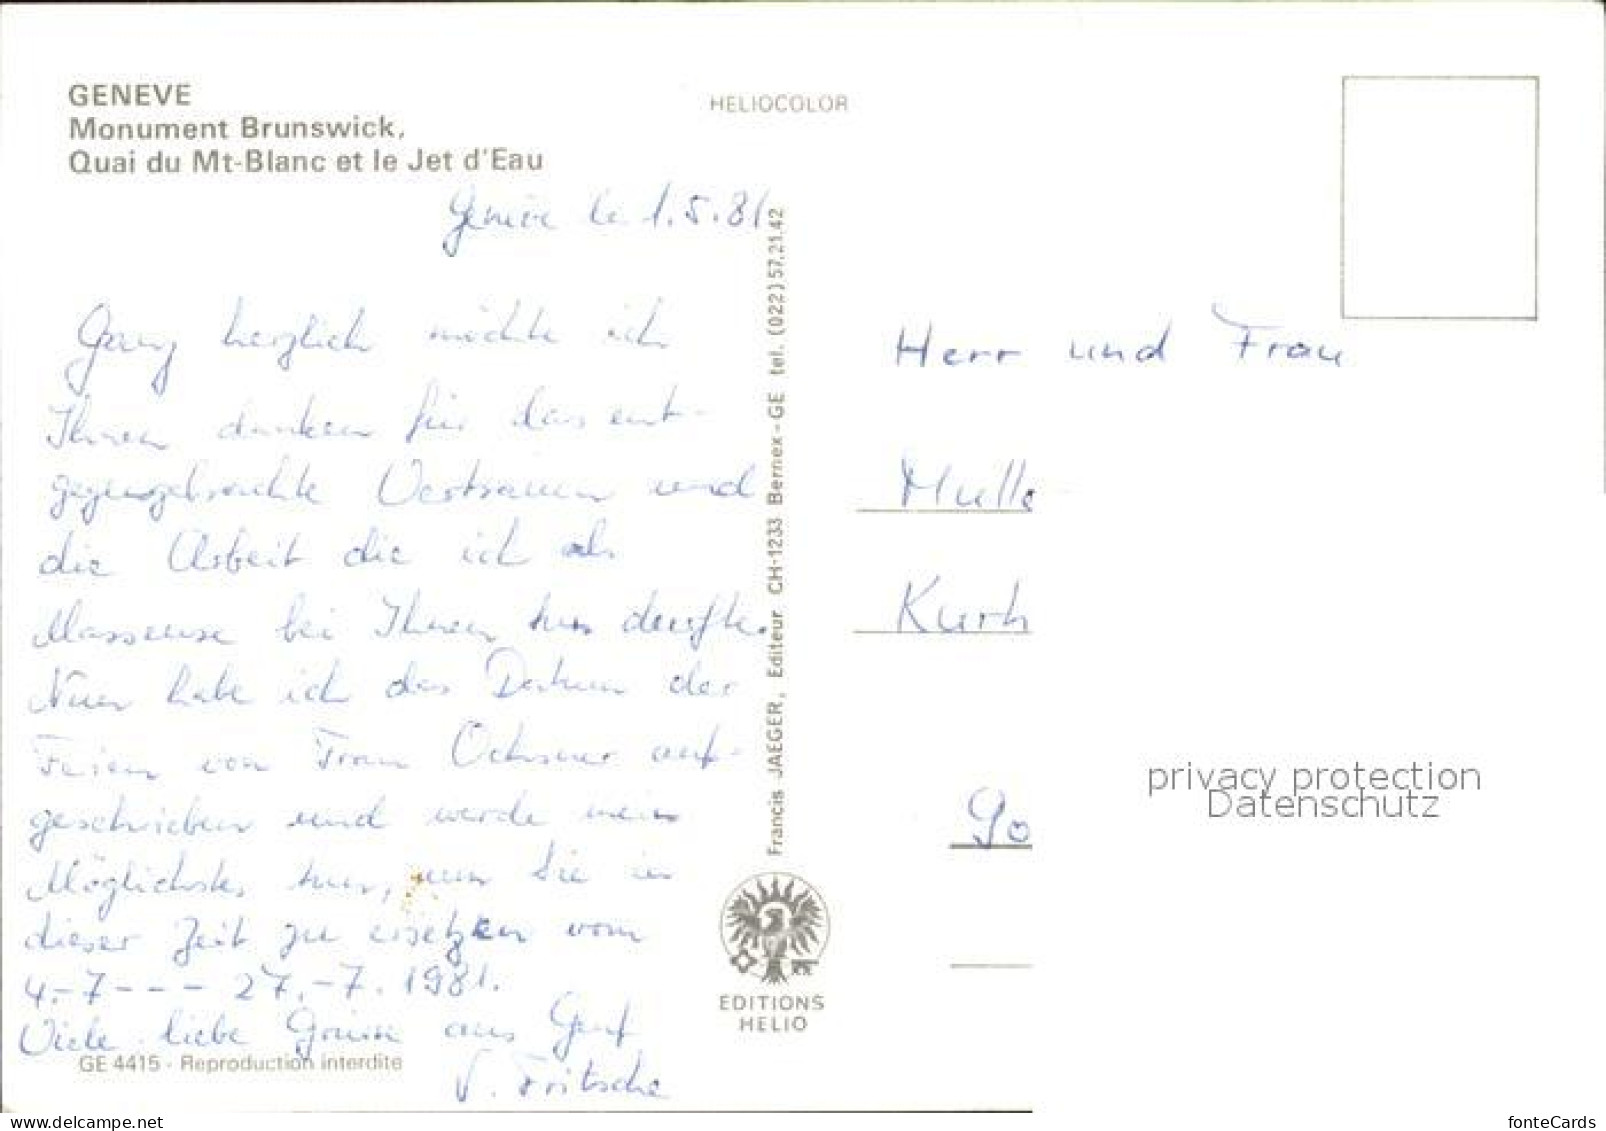 GENEVE
Monument Brunswick,
Quai du Mt-Blanc et le Jet d'Eau
HELIOCOLOR
Genève le 1.5.81
Ganz herzlich möchte ich
Ihnen danken für das ent-
gegengebrachte Vertrauen und
die Arbeit die ich als
Masseuse bei Ihnen tun durfte.
Nun habe ich das Datum der
Ferien von Frau Ochsner auf-
geschrieben und werde mein
Möglichstes tun, um Sie in
dieser Zeit zu ersetzen vom
4.-7--- 27.-7. 1981.
Viele liebe Grüsse aus Genf
V. Fritsche
GE 4415 - Reproduction interdite
Francis JAEGER, Editeur CH-1233 Bernex-GE tel. (022) 57.21.42
EDITIONS
HELIO
Herr und Frau
Mülle
Kurh
Go
privacy protection
Datenschutz
www.delcampe.net
fonteCards